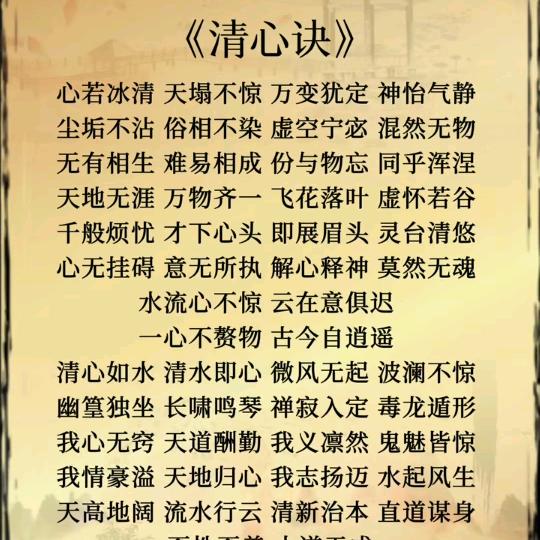 《清心诀》
心若冰清 天塌不惊 万变犹定 神怡气静
尘垢不沾 俗相不染 虚空宁宓 混然无物
无有相生 难易相成 份与物忘 同乎浑涅
天地无涯 万物齐一 飞花落叶 虚怀若谷
千般烦忧 才下心头 即展眉头 灵台清悠
心无挂碍 意无所执 解心释神 莫然无魂
水流心不惊 云在意俱迟
一心不赘物 古今自逍遥
清心如水 清水即心 微风无起 波澜不惊
幽篁独坐 长啸鸣琴 禅寂入定 毒龙遁形
我心无窍 天道酬勤 我义凛然 鬼魅皆惊
我情豪溢 天地归心 我志扬迈 水起风生
天高地阔 流水行云 清新治本 直道谋身